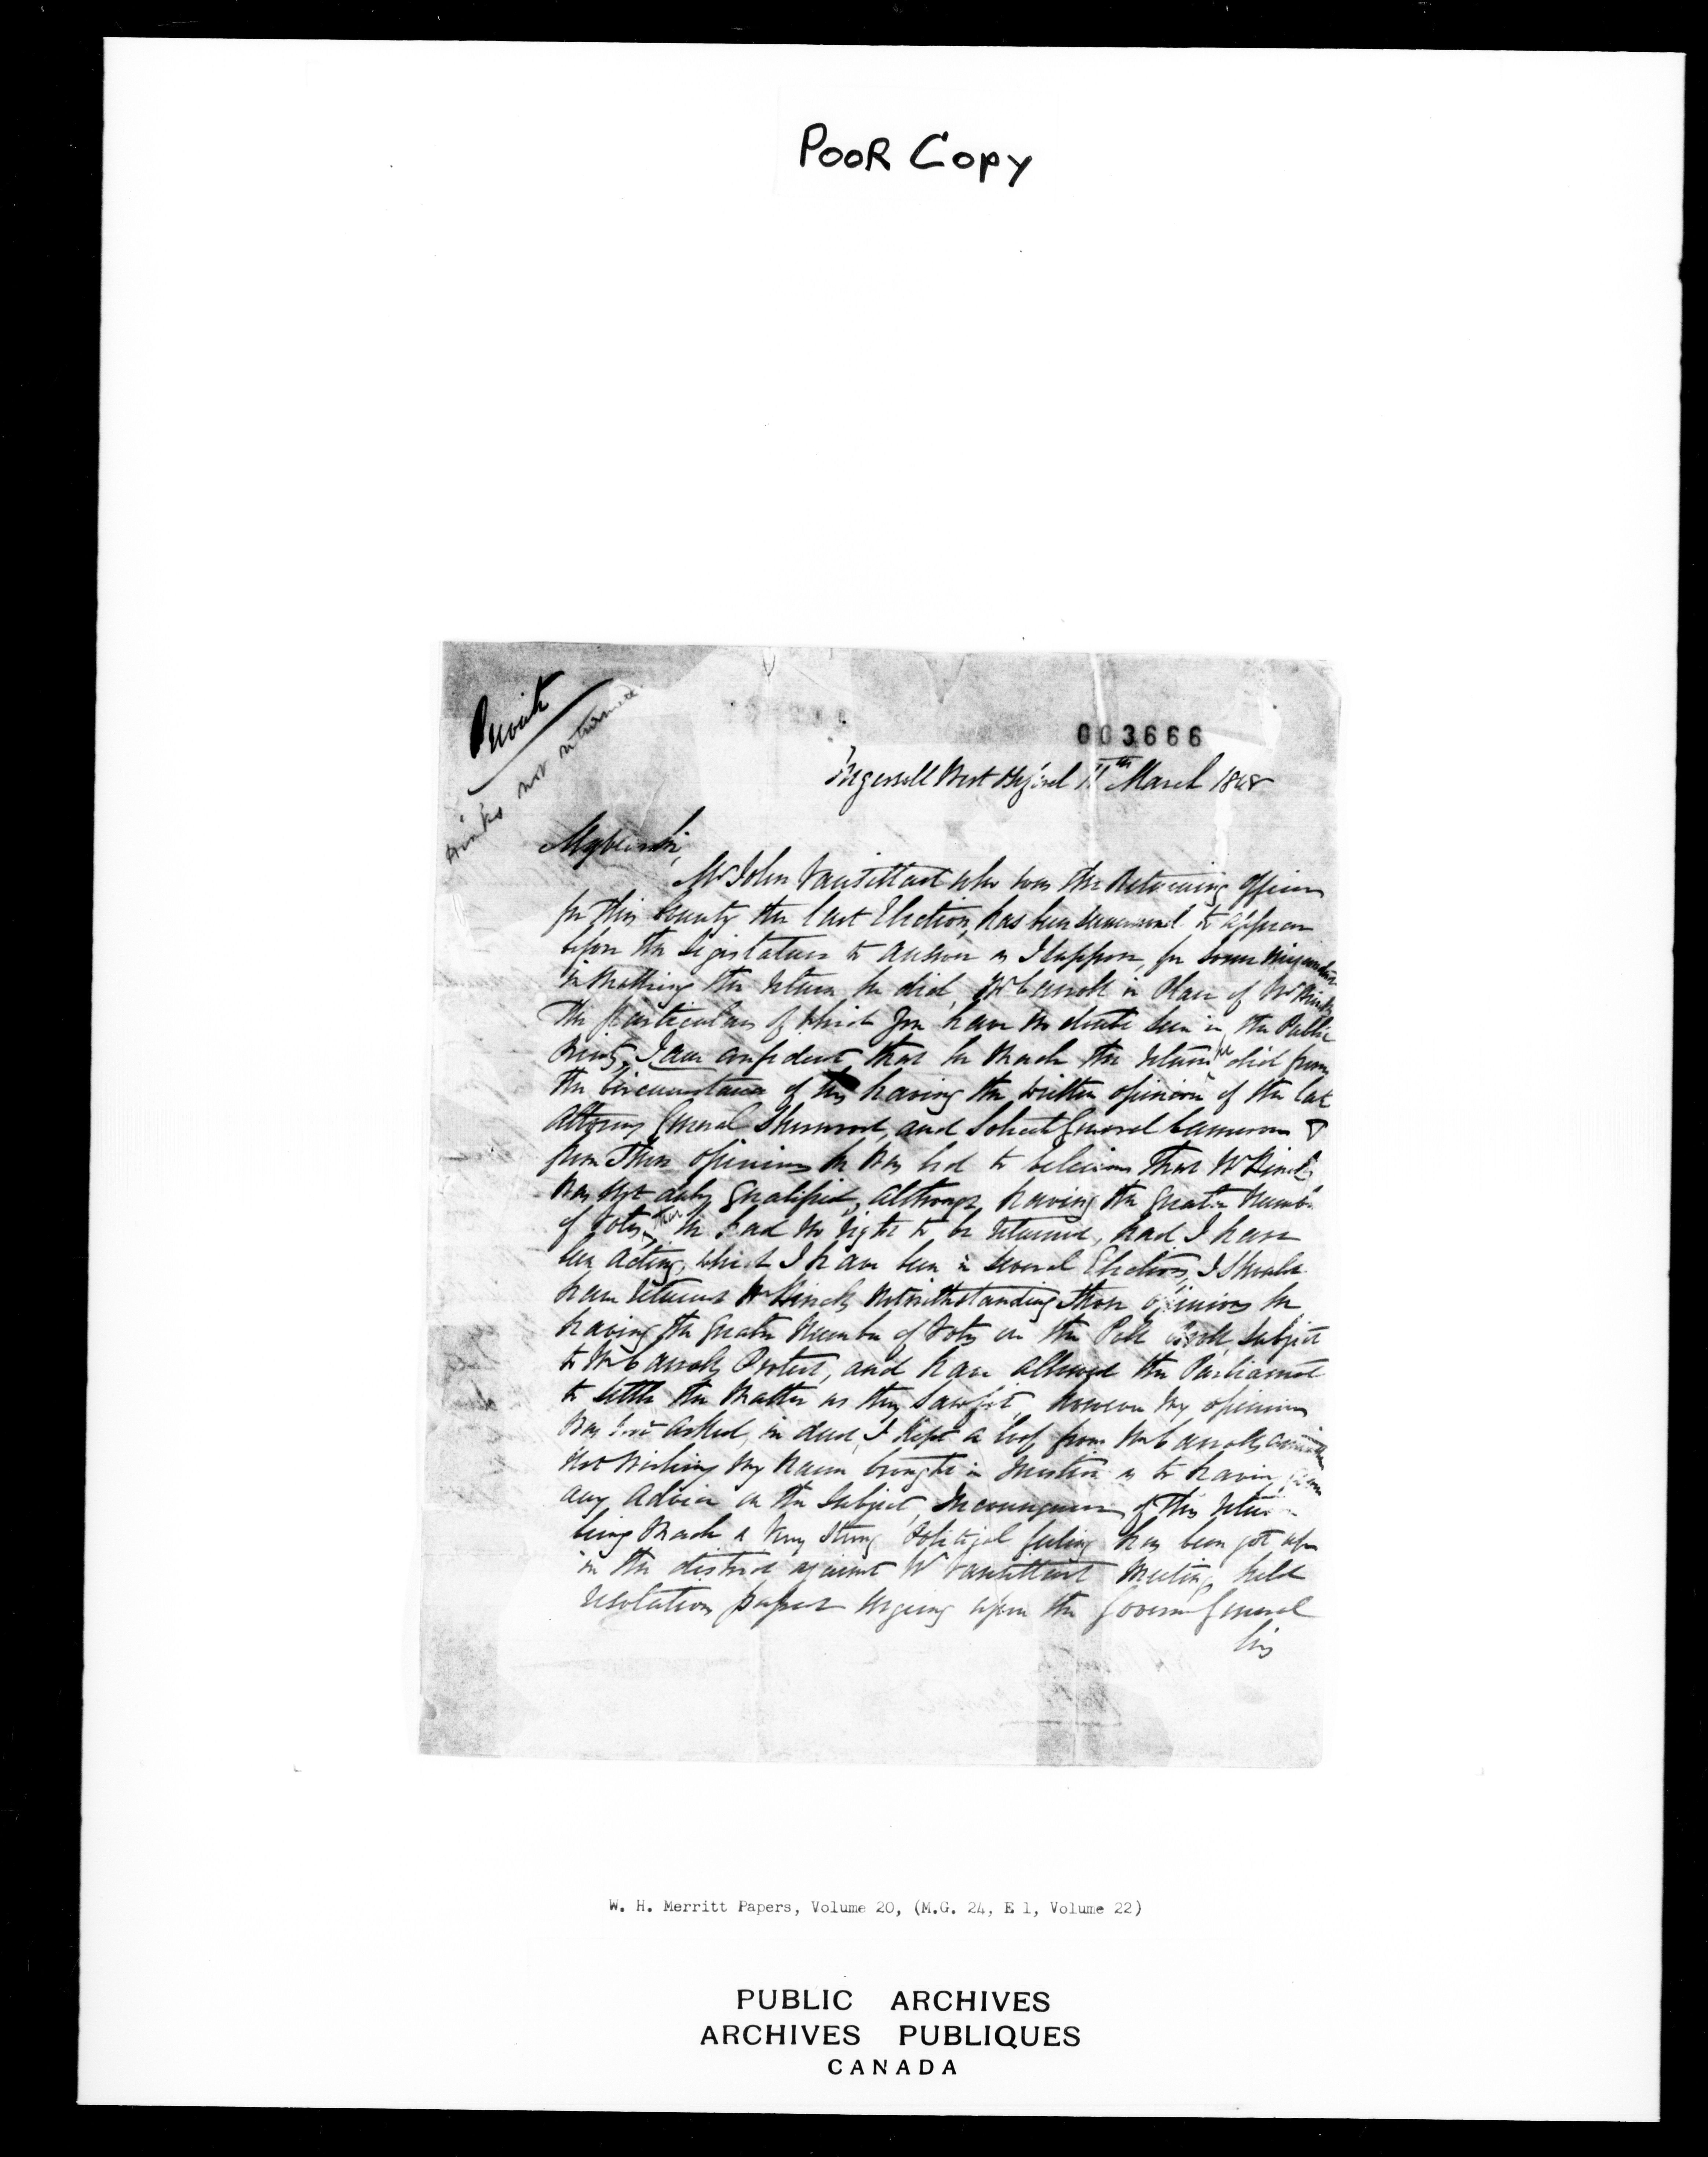 Poor Copy
Private
Hinks not returned
003666
Ingersoll West Oxford 11th March 1848
My Dear Sir,
Mr John Vansittart who was the Returning officer
for this County the last Election, has been summoned to appear
before the Legislature to answer as I suppose, for some
in making the return he did, Mr Carroll in place of Mr Hincks
the particulars of which you have no doubt seen in the Public
prints, I am confident that he made the return he did from
the circumstance of his having the written opinion of the late
Attorney General Sherwood, and Solicit General Cameron &
from their opinions he was led to believe that Mr Hincks
was not duly qualified, although having the greater number
of votes, that he had no right to be returned, had I have
been acting, which I have been in several Elections, I should
have returned Mr Hincks notwithstanding those opinions he
having the greater number of votes on the Poll Book, subject
to Mr Carrolls Protest, and have allowed the Parliament
to settle the matter as they saw fit, however my opinion
was not asked, in deed, I kept a loof from Mr Carrolls
not wishing my name brought in question as to having given
any advice on the subject, In consequence of this return
being made a very strong political feeling has been got up
in the district against Mr Vansittart Meetings held
resolutions passed urging upon the Governor General
his
W. H. Merritt Papers, Volume 20, (M.G. 24, E 1, Volume 22)
PUBLIC ARCHIVES
ARCHIVES PUBLIQUES
CANADA